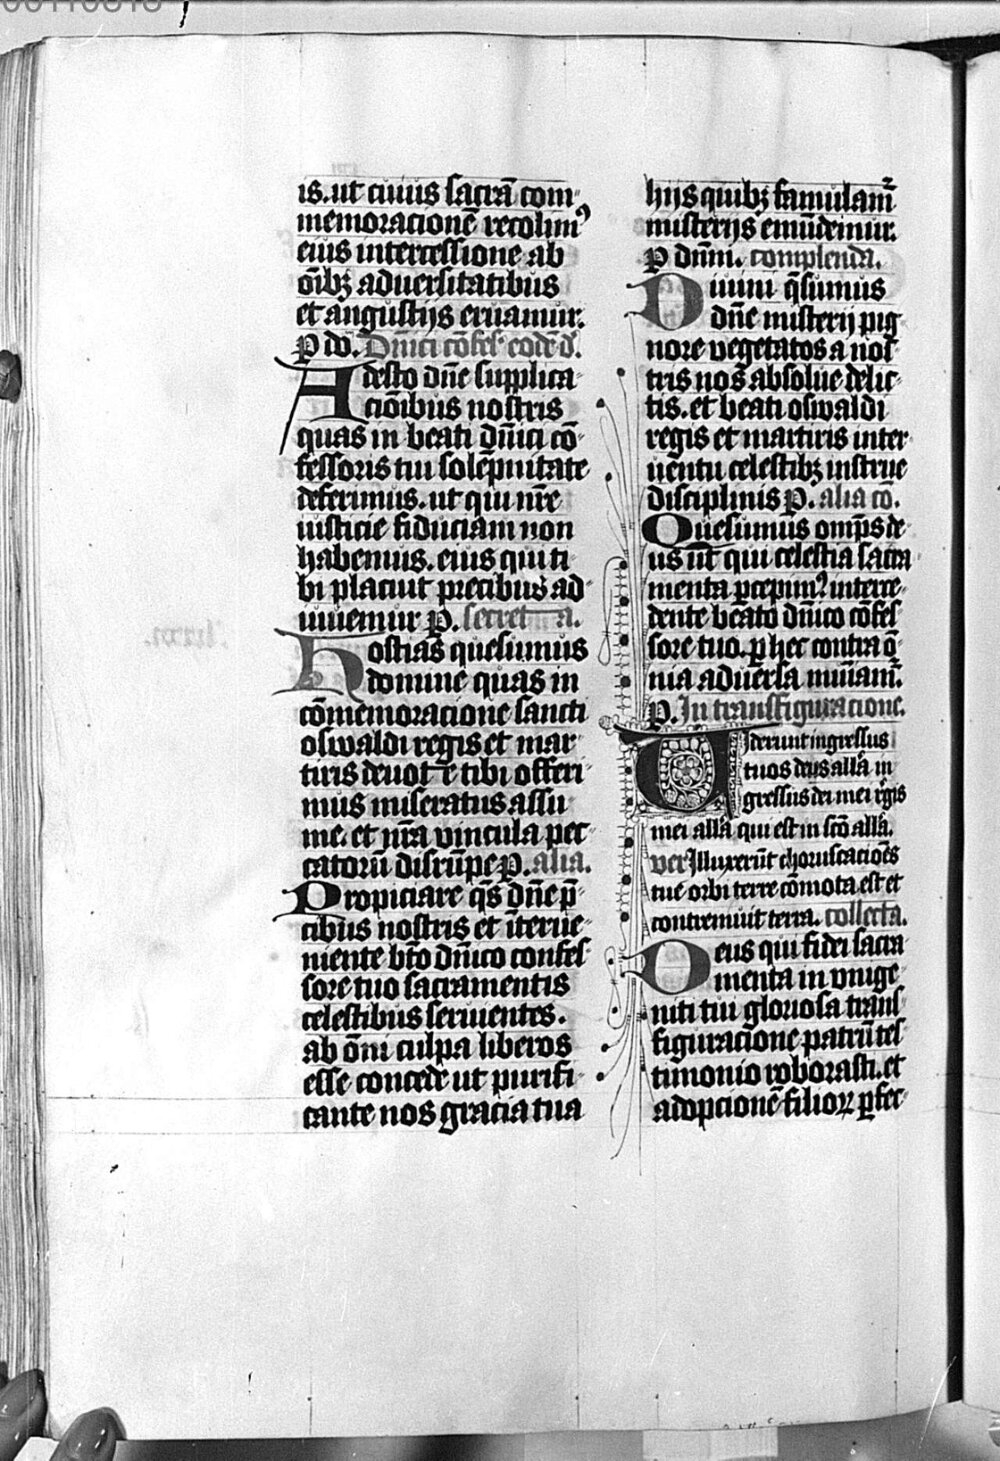 is. ut cuius sacrā com⸗
memoracionē recolimꝰ
eius intercessione ab
oībꝫ aduersitatibus
et angustijs eruamur.
P dō. Dn̄ici cōfes̄ eodē d̄.
Adesto dn̄e supplica⸗
cionibus nostris
quas in beati dn̄ici cō⸗
fessoris tui solēpnitate
deferimus. ut qui nr̄e
iusticie fiduciam non
habemus. eius qui ti⸗
bi placuit precibus ad⸗
iuuemur P. secreta.
Hostias quesumus
domine quas in
cōmemoracione sancti
oswaldi regis et mar⸗
tiris deuote tibi offeri⸗
mus miseratus assu
me. et nr̄a vincula pec⸗
catorū disrūpe P. alia.
Propiciare qs̄ dn̄e p̄⸗
cibus nostris et īterue⸗
niente bt̄o dn̄ico confes⸗
sore tuo sacramentis
celestibus seruientes.
ab om̄i culpa liberos
esse concede ut purifi⸗
cante nos gracia tua
hijs quibꝫ famulam̄
misterijs emūdemur.
P dn̄m. complenda.
Diuini q̄sumus
dn̄e misterij pig
nore vegetatos a nos⸗
tris nos absolue delic⸗
tis. et beati oswaldi
regis et martiris inter⸗
uentu celestibꝫ instrue
disciplinis P. alia cō.
Quesumus omp̄s de⸗
us ut qui celestia sacra
menta ꝑcepimꝰ interce⸗
dente beato dn̄ico cōfes⸗
sore tuo. ꝑ hec contra ō⸗
nia aduersa muniam̄.
P. In transfiguracione.
Uiderunt ingressus
tuos deus alla in
gressus dei mei regis
mei alla qui est in sc̄o alla.
ver Illuxerūt choruscacioēs
tue orbi terre cōmota est et
contremuit terra. collecta.
Deus qui fidei sacra
menta in vnige⸗
niti tui gloriosa trans⸗
figuracione patrū tes⸗
timonio roborasti. et
adopcionē filioꝝ ꝑfec⸗